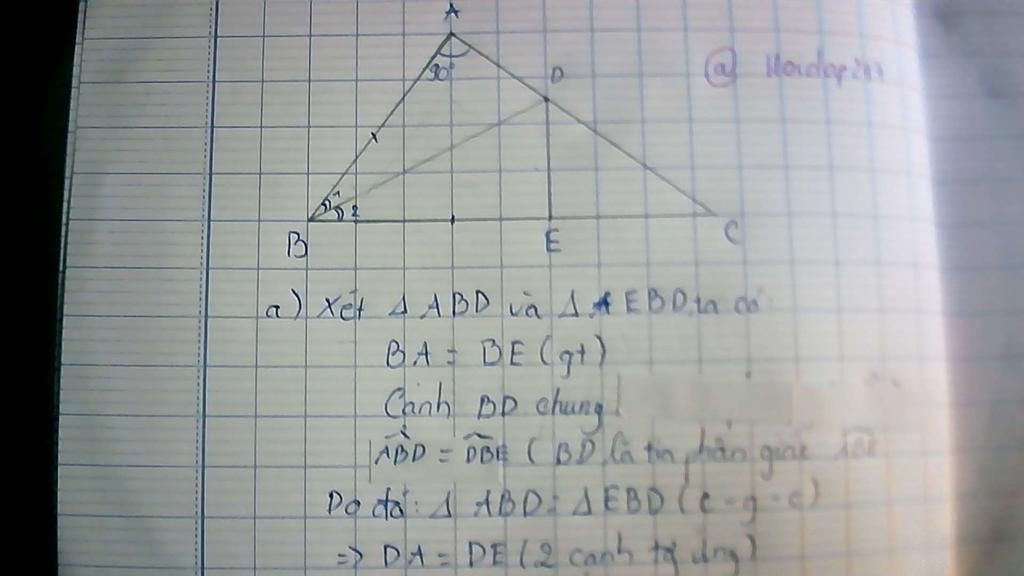 A
90°
D
B
1
2
E
C
a) Xét Δ ABD và Δ EBD ta có
BA = BE (gt)
Cạnh BD chung
ABD = DBE (BD là tia phân giác
Do đó: Δ ABD = Δ EBD (c-g-c)
=> DA = DE (2 cạnh tg ứng)